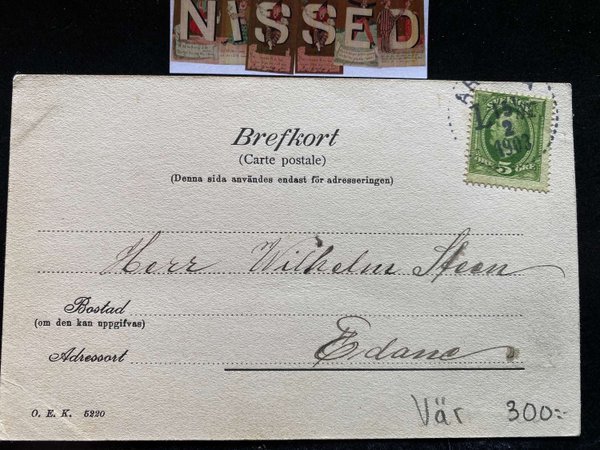 NISSED
Brefkort
(Carte postale)
(Denna sida användes endast för adresseringen)
SVERIGE
2
1903
FEM 5 ÖRE
Herr Wilhelm Steen
Bostad
(om den kan uppgifvas)
Adressort
Edane
O. E. K. 5220
Vär 300:-